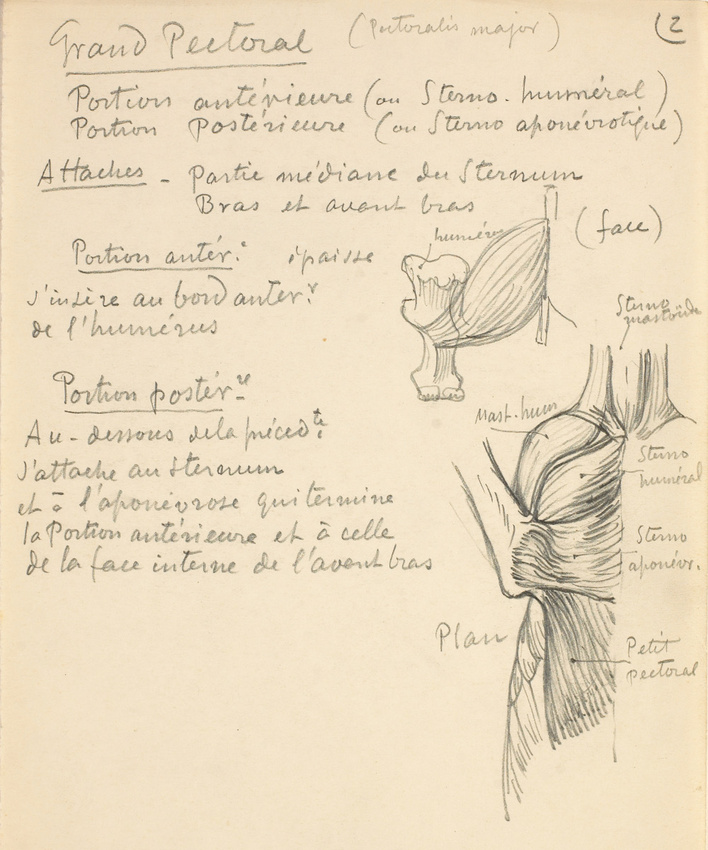 Grand Pectoral (Pectoralis major) (2
Portion antérieure (ou Sterno-huméral)
Portion Postérieure (ou Sterno aponévrotique)
Attaches - Partie médiane du Sternum
Bras et avant bras
(face)
huméru
Portion antér.e épaisse
s'insère au bord antér.r
de l'humérus
Sterno
mastoïde
Portion postér-re
Au-dessous de la précédte.
s'attache au sternum
et à l'aponévrose qui termine
la Portion antérieure et à celle
de la face interne de l'avant bras
Mast-hum
Sterno
huméral
Sterno
aponévr.
Plan
Petit
pectoral